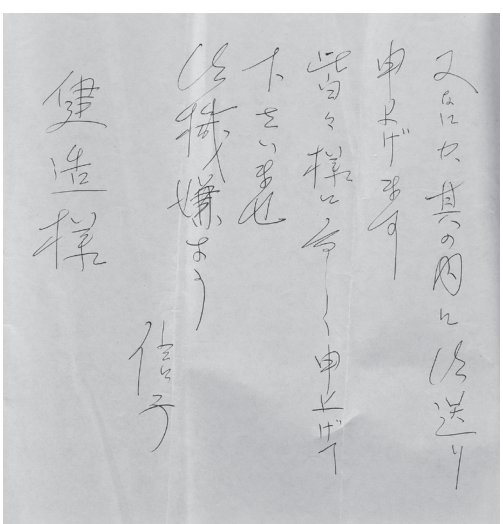 又なにか其の内に御送り
申上げます
皆々様に宜しく申上げて
下さいませ
御機嫌よう
信子
建造様